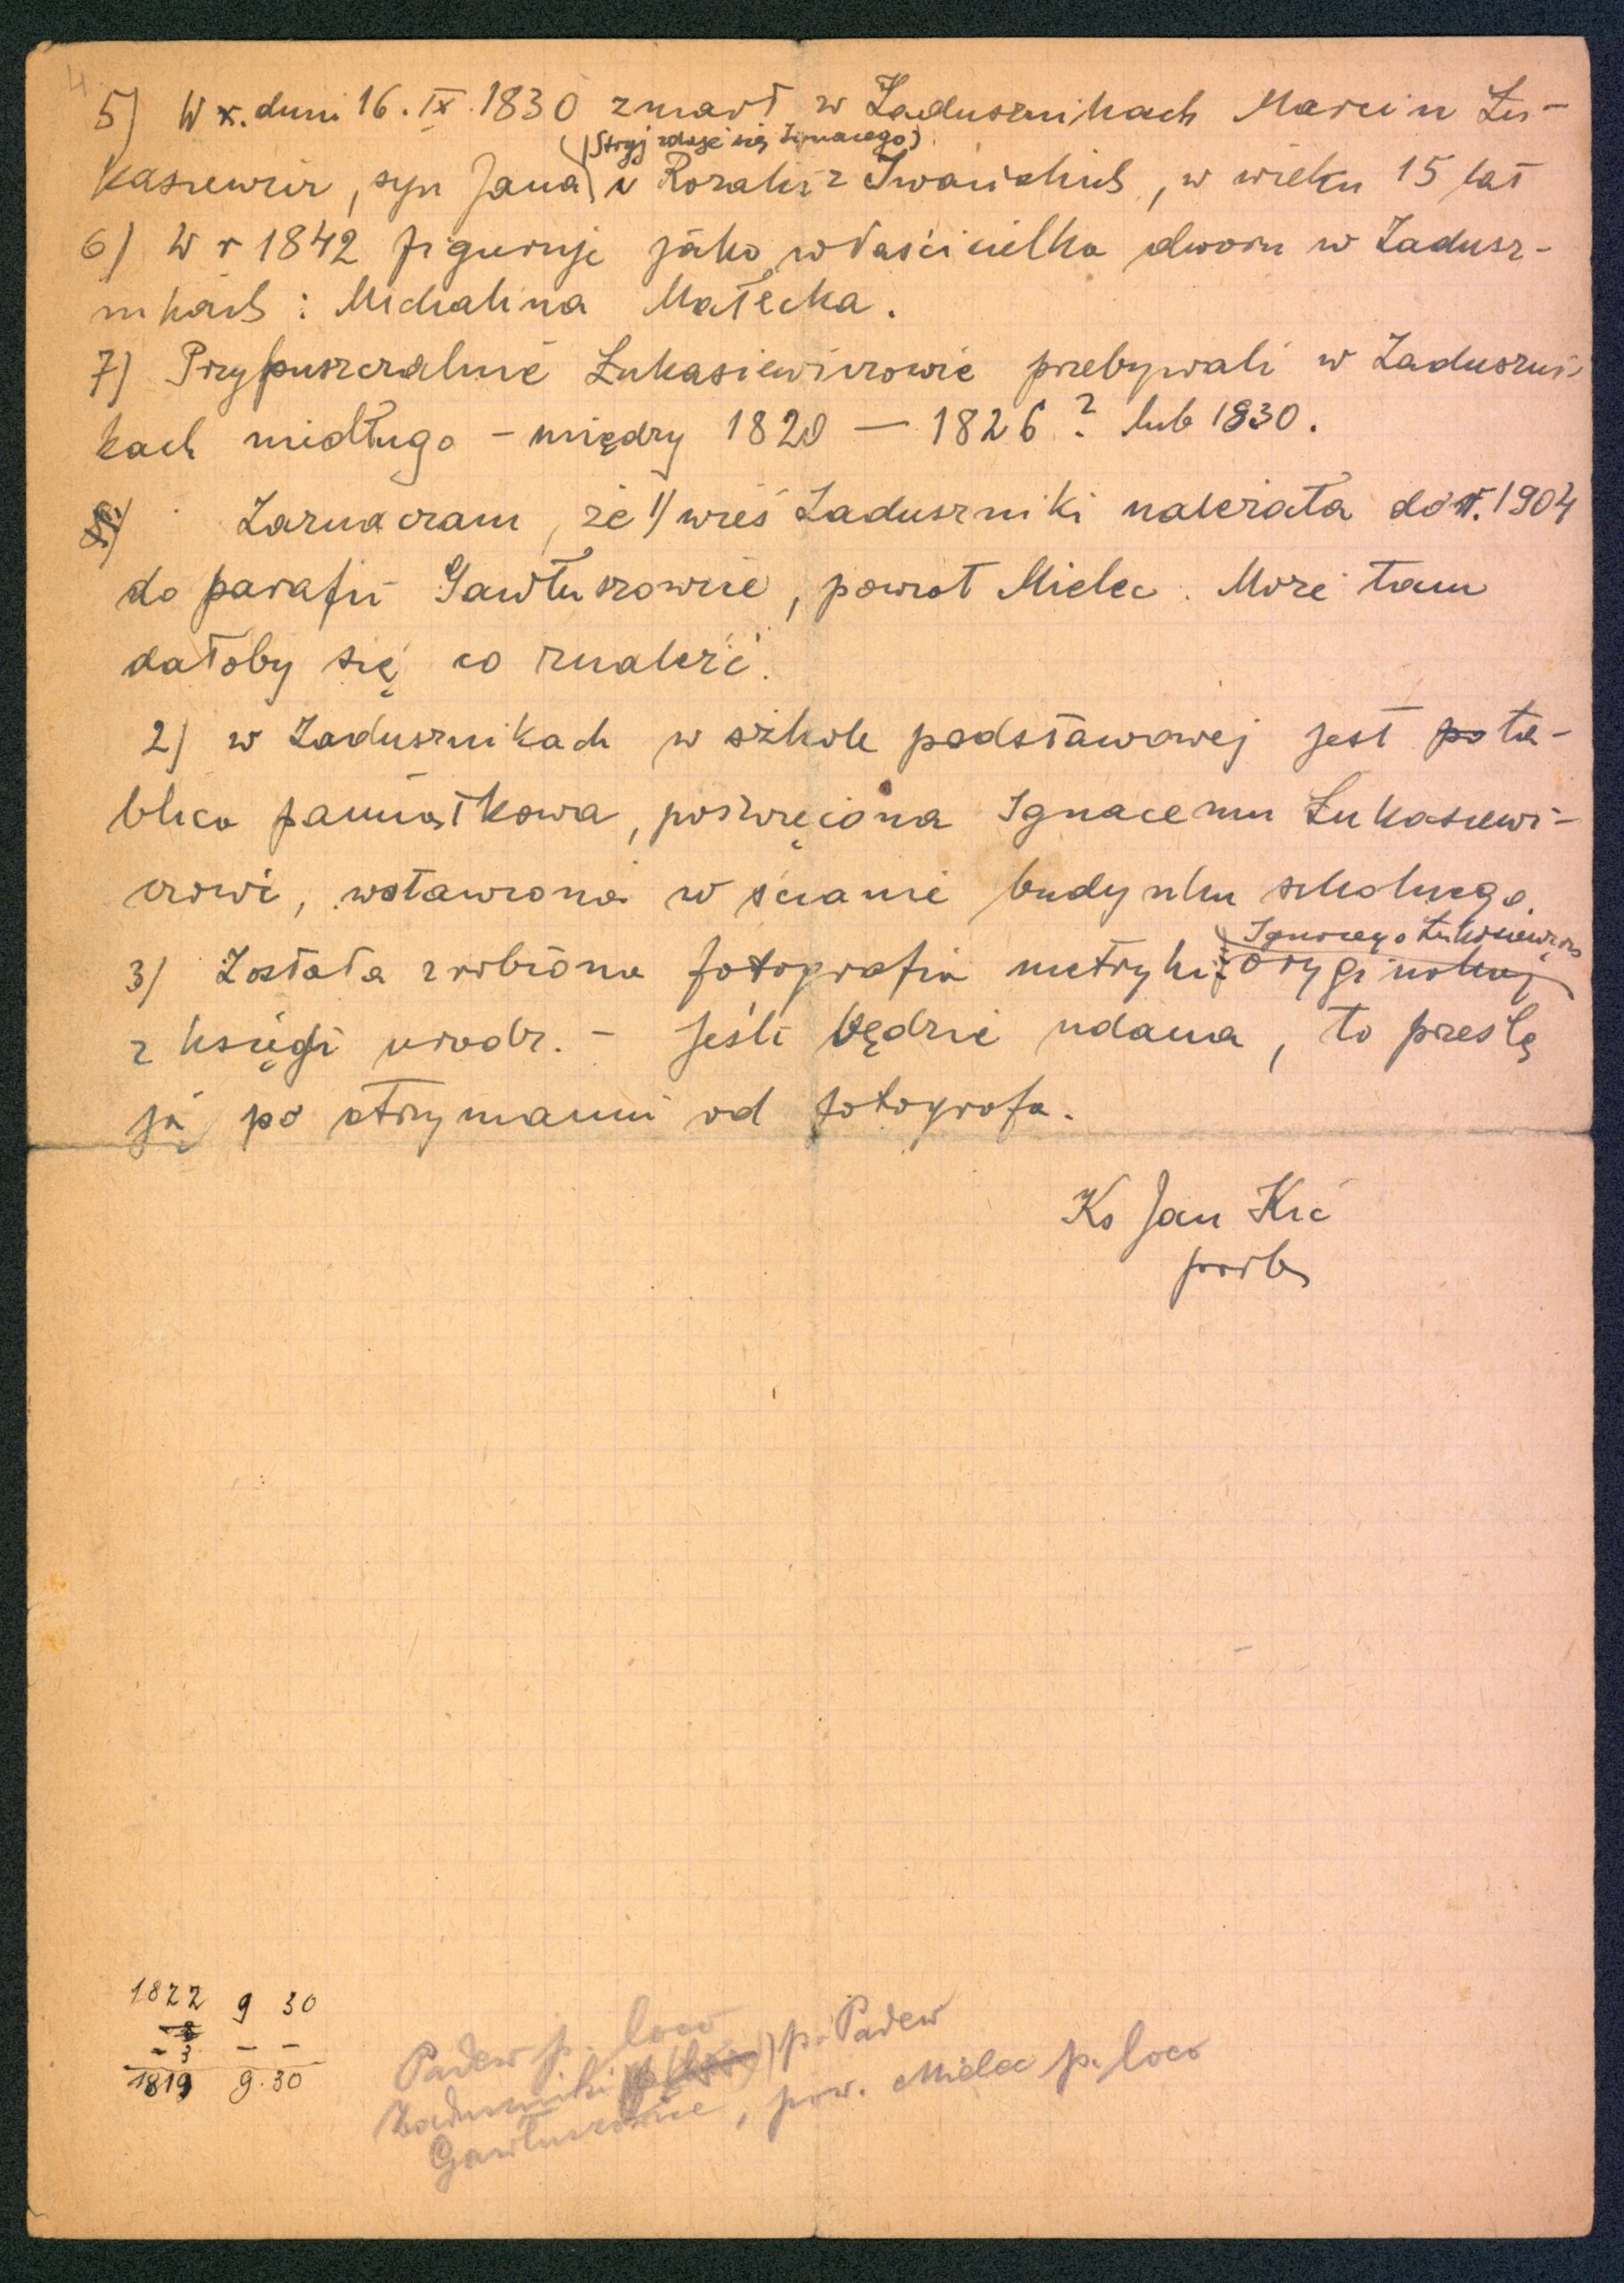 4.
5) W r. dnia 16. IX. 1830 zmarł w Zadusznikach Marcin Łu-
(Stryj zdaje się Ignacego)
kasiewicz, syn Jana i Rozalii z Iwanickich, w wieku 15 lat
6) W r 1842 figuruje jako właścicielka dworu w Zadusz-
nikach: Michalina Małecka.
7) Przypuszczalnie Łukasiewiczowie przebywali w Zaduszni-
kach niedługo – między 1820 — 1826? lub 1830.
Zaznaczam, że 1) wieś Zaduszniki należała do r. 1904
do parafii Gawłuszowice, powiat Mielec. Może tam
dałoby się co znaleźć.
2) w Zadusznikach w szkole podstawowej jest po ta-
blica pamiątkowa, poświęcona Ignacemu Łukasiewi-
czowi, wstawiona w ścianie budynku szkolnego.
Ignacego Łukasiewicza
3) Została zrobiona fotografia metryki oryginalnej
z księgi urodz. – Jeśli będzie udana, to prześlę
ją po otrzymaniu od fotografa.
Ks Jan Kić
prob.
1822 9 30
- 3 – –
1819 9.30
Padew p. loco
Zaduszniki p. Padew
Gawłuszowice, pow. Mielec p. loco